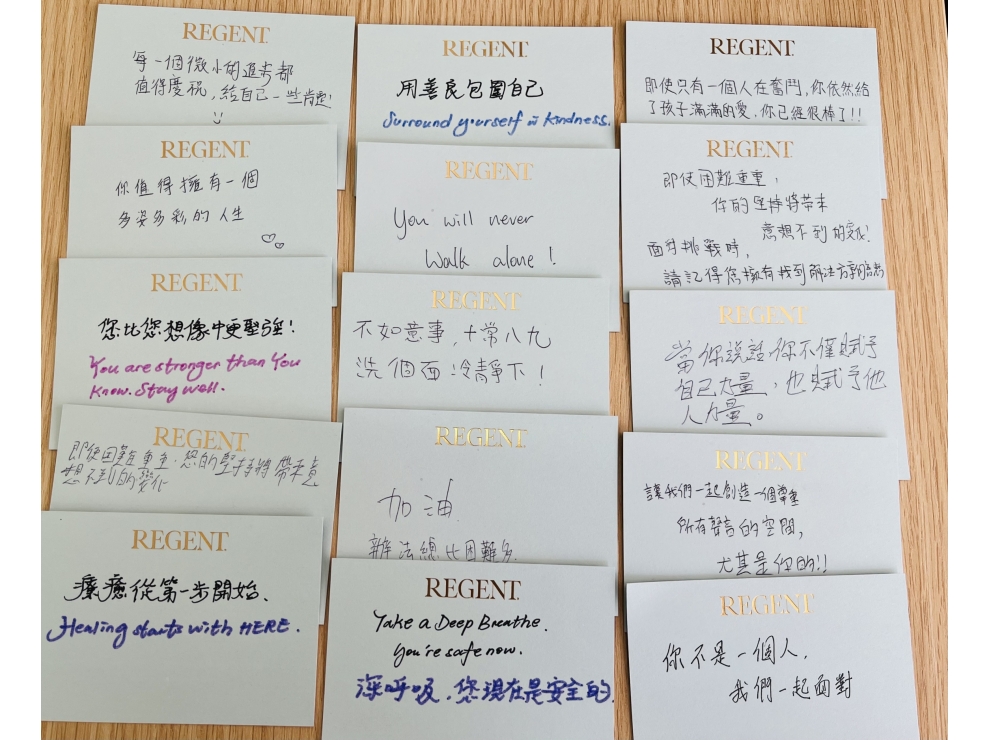 REGENT
每一個微小的進步都
值得慶祝,給自己一些肯定!
REGENT
你值得擁有一個
多姿多彩的人生
REGENT
您比您想像中更堅強!
You are stronger than You
Know. Stay well.
REGENT
即使困難重重,您的堅持將帶來意
想不到的變化
REGENT
療癒從第一步開始.
Healing starts with HERE.
REGENT
用善良包圍自己
Surround yourself in Kindness.
REGENT
You will never
Walk alone!
REGENT
不如意事,十常八九
洗個面冷靜下!
REGENT
加油
辦法總比困難多.
REGENT
Take a Deep Breathe.
You're safe now.
深呼吸.您現在是安全的
REGENT
即使只有一個人在奮鬥,你依然給
了孩子滿滿的愛.你已經很棒了!!
REGENT
即使困難重重,
你的堅持將帶來
意想不到的變化!
面對挑戰時,
請記得您擁有找到解決方案的
REGENT
當你說話你不僅賦予
自己力量,也賦予他
人力量。
REGENT
讓我們一起創造一個尊重
所有聲音的空間,
尤其是你的!!
REGENT
你不是一個人.
我們一起面對